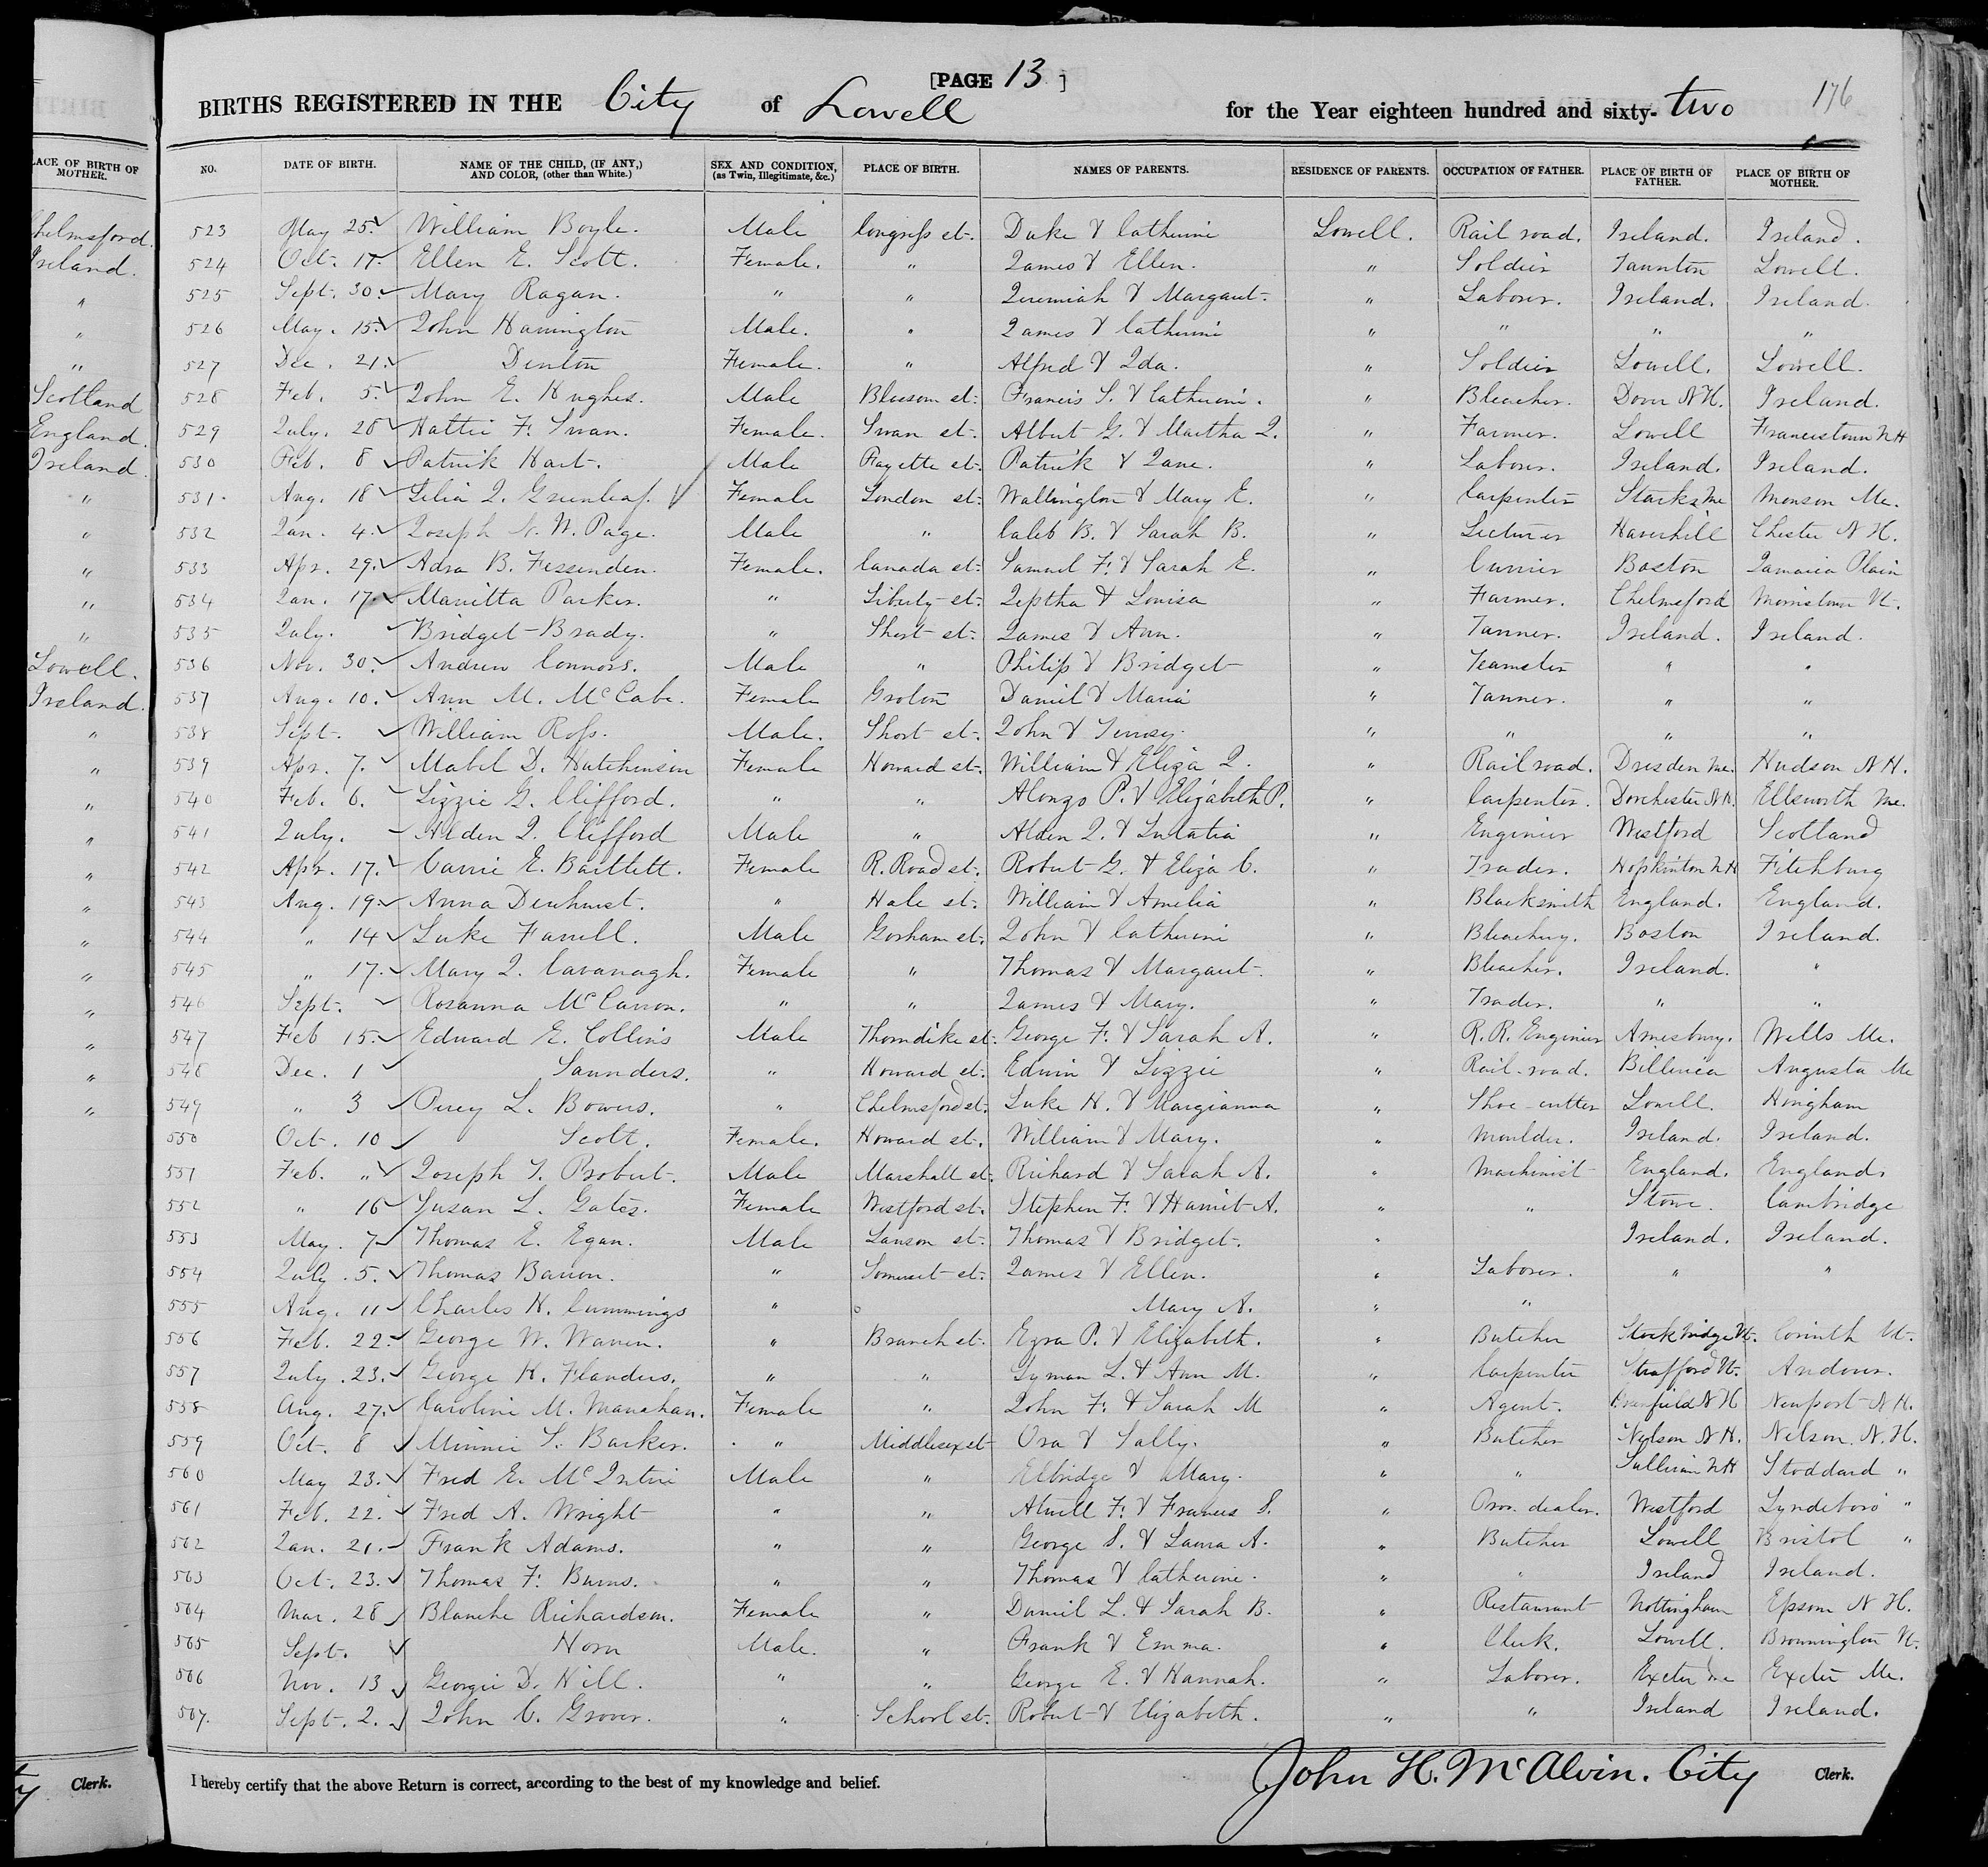 [PAGE 13]
176
BIRTHS REGISTERED IN THE City of Lowell for the Year eighteen hundred and sixty-two
PLACE OF BIRTH OF MOTHER.
Chelmsford.
Ireland.
"
"
"
Scotland
England.
Ireland.
"
"
"
"
"
Lowell.
Ireland.
"
"
"
"
"
"
"
"
"
"
"
"
Clerk.
NO. DATE OF BIRTH. NAME OF THE CHILD, (IF ANY,) AND COLOR, (other than White.) SEX AND CONDITION, (as Twin, Illegitimate, &c.) PLACE OF BIRTH. NAMES OF PARENTS. RESIDENCE OF PARENTS. OCCUPATION OF FATHER. PLACE OF BIRTH OF FATHER. PLACE OF BIRTH OF MOTHER.
523 May 25. William Boyle. Male Congress st. Duke & Catherine Lowell. Rail road. Ireland. Ireland.
524 Oct. 17. Ellen E. Scott. Female. " James & Ellen. " Soldier Taunton Lowell.
525 Sept. 30. Mary Ragan. " " Jeremiah & Margaret. " Laborer. Ireland. Ireland.
526 May. 15. John Harrington Male. " James & Catherine " " " "
527 Dec. 21. Denton Female. " Alfred & Ida. " Soldier Lowell. Lowell.
528 Feb. 5. John E. Hughes. Male Blossom st. Francis S. & Catherine. " Bleacher. Dover N H. Ireland.
529 July. 28 Hattie F. Swan. Female. Swan st. Albert G. & Martha J. " Farmer. Lowell Francistown N H
530 Feb. 8 Patrick Hart. Male Fayette st. Patrick & Jane. " Laborer. Ireland. Ireland.
531. Aug. 18 Lelia J. Greenleaf. Female London st. Wallington & Mary E. " Carpenter Starks Me Monson Me.
532 Jan. 4. Joseph W. Page. Male " Caleb B. & Sarah B. " Lecturer Haverhill Chester N H.
533 Apr. 29. Adra B. Fessenden. Female. Canada st. Samuel F. & Sarah E. " Currier Boston Jamaica Plain
534 Jan. 17. Marietta Parker. " Liberty st. Jeptha & Louisa " Farmer. Chelmsford Morristown Vt.
535 July. Bridget Brady. " Short st. James & Ann. " Tanner. Ireland. Ireland.
536 Nov. 30. Andrew Connors. Male " Philip & Bridget " Teamster " "
537 Aug. 10. Ann M. McCabe. Female Groton Daniel & Maria " Tanner. " "
538 Sept. William Ross. Male. Short st. John & " " " "
539 Apr. 7. Mabel D. Hutchinson Female Howard st. William & Eliza J. " Rail road. Dresden Me. Hudson N H.
540 Feb. 6. Lizzie G. Clifford. " " Alonzo P. & Elizabeth P. " Carpenter. Dorchester N H. Ellsworth Me.
541 July. Alden J. Clifford Male " Alden J. & Lucatia " Engineer Westford Scotland
542 Apr. 17. Carrie E. Bartlett. Female R. Road st. Robert G. & Eliza C. " Trader. Hopkinton N H Fitchburg
543 Aug. 19. Anna Dewhurst. " Hale st. William & Amelia " Blacksmith England. England.
544 " 14 Luke Farrell. Male Gorham st. John & Catherine " Bleachery. Boston Ireland.
545 " 17. Mary J. Cavanagh. Female " Thomas & Margaret. " Bleacher. Ireland. "
546 Sept. Rosanna McCarron. " " James & Mary. " Trader. " "
547 Feb 15. Edward E. Collins Male Thorndike st. George F. & Sarah A. " R. R. Engineer Amesbury. Wells Me.
548 Dec. 1 Saunders. " Howard st. Edwin & Lizzie " Rail-road. Billerica Augusta Me
549 " 3 Percy L. Bowers. " Chelmsford st. Luke H. & Margianna " Shoe-cutter Lowell. Hingham
550 Oct. 10 Scott. Female. Howard st. William & Mary. " Moulder. Ireland. Ireland.
551 Feb. " Joseph T. Probert. Male Marshall st. Richard & Sarah A. " Machinist England. England.
552 " 16 Susan L. Gates. Female Westford st. Stephen F. & Harriet A. " " Stowe. Cambridge
553 May. 7 Thomas E. Egan. Male Lawson st. Thomas & Bridget. " Ireland. Ireland.
554 July. 5. Thomas Barron. " Somerset st. James & Ellen. " Laborer. " "
555 Aug. 11 Charles H. Cummings " Mary A. " "
556 Feb. 22. George W. Warren. " Branch st. Ezra P. & Elizabeth. " Butcher Stockbridge Vt. Corinth Vt.
557 July. 23. George H. Flanders. " " Lyman L. & Ann M. " Carpenter Strafford Vt. Andover.
558 Aug. 27. Caroline M. Manahan. Female " John F. & Sarah M " Agent. N H Newport N H.
559 Oct. 8 Minnie S. Barker. " Middlesex st Ora & Sally. " Butcher Nelson N H. Nelson. N. H.
560 May 23. Fred E. McIntire Male " Elbridge & Mary. " " Sullivan N H Stoddard "
561 Feb. 22. Fred A. Wright " " Atwell F. & Frances S. " Prov. dealer. Westford Lyndeboro "
562 Jan. 21. Frank Adams. " " George S. & Laura A. " Butcher Lowell Bristol "
563 Oct. 23. Thomas F. Burns. " " Thomas & Catherine. " " Ireland Ireland.
564 Mar. 28 Blanche Richardson. Female " Daniel L. & Sarah B. " Restaurant Nottingham Epsom N H.
565 Sept. Horn Male. " Frank & Emma. " Clerk. Lowell. Brownington Vt.
566 Nov. 13 Georgie D. Hill. " " George E. & Hannah. " Laborer. Exeter Me Exeter Me.
567. Sept. 2. John C. Grover. " School st. Robert & Elizabeth. " " Ireland Ireland.
I hereby certify that the above Return is correct, according to the best of my knowledge and belief.
John H. McAlvin. City Clerk.